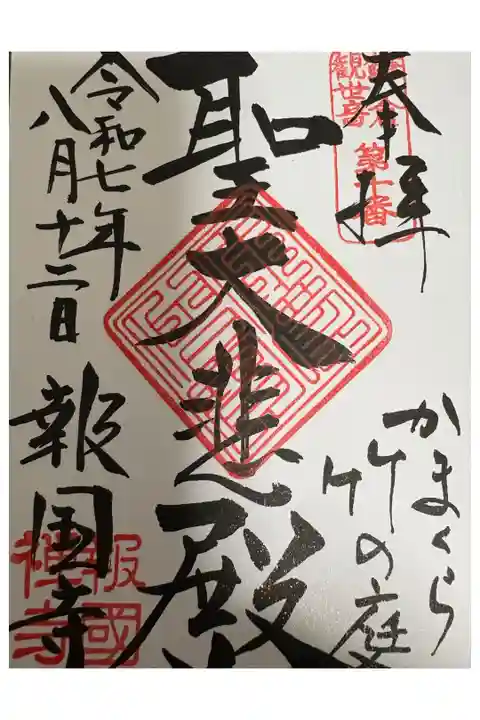 奉拝
鎌倉
観世音
第十番
かまくら
竹の庭
聖大悲殿
令和七年
八月十二日
報国寺
報國
禅寺